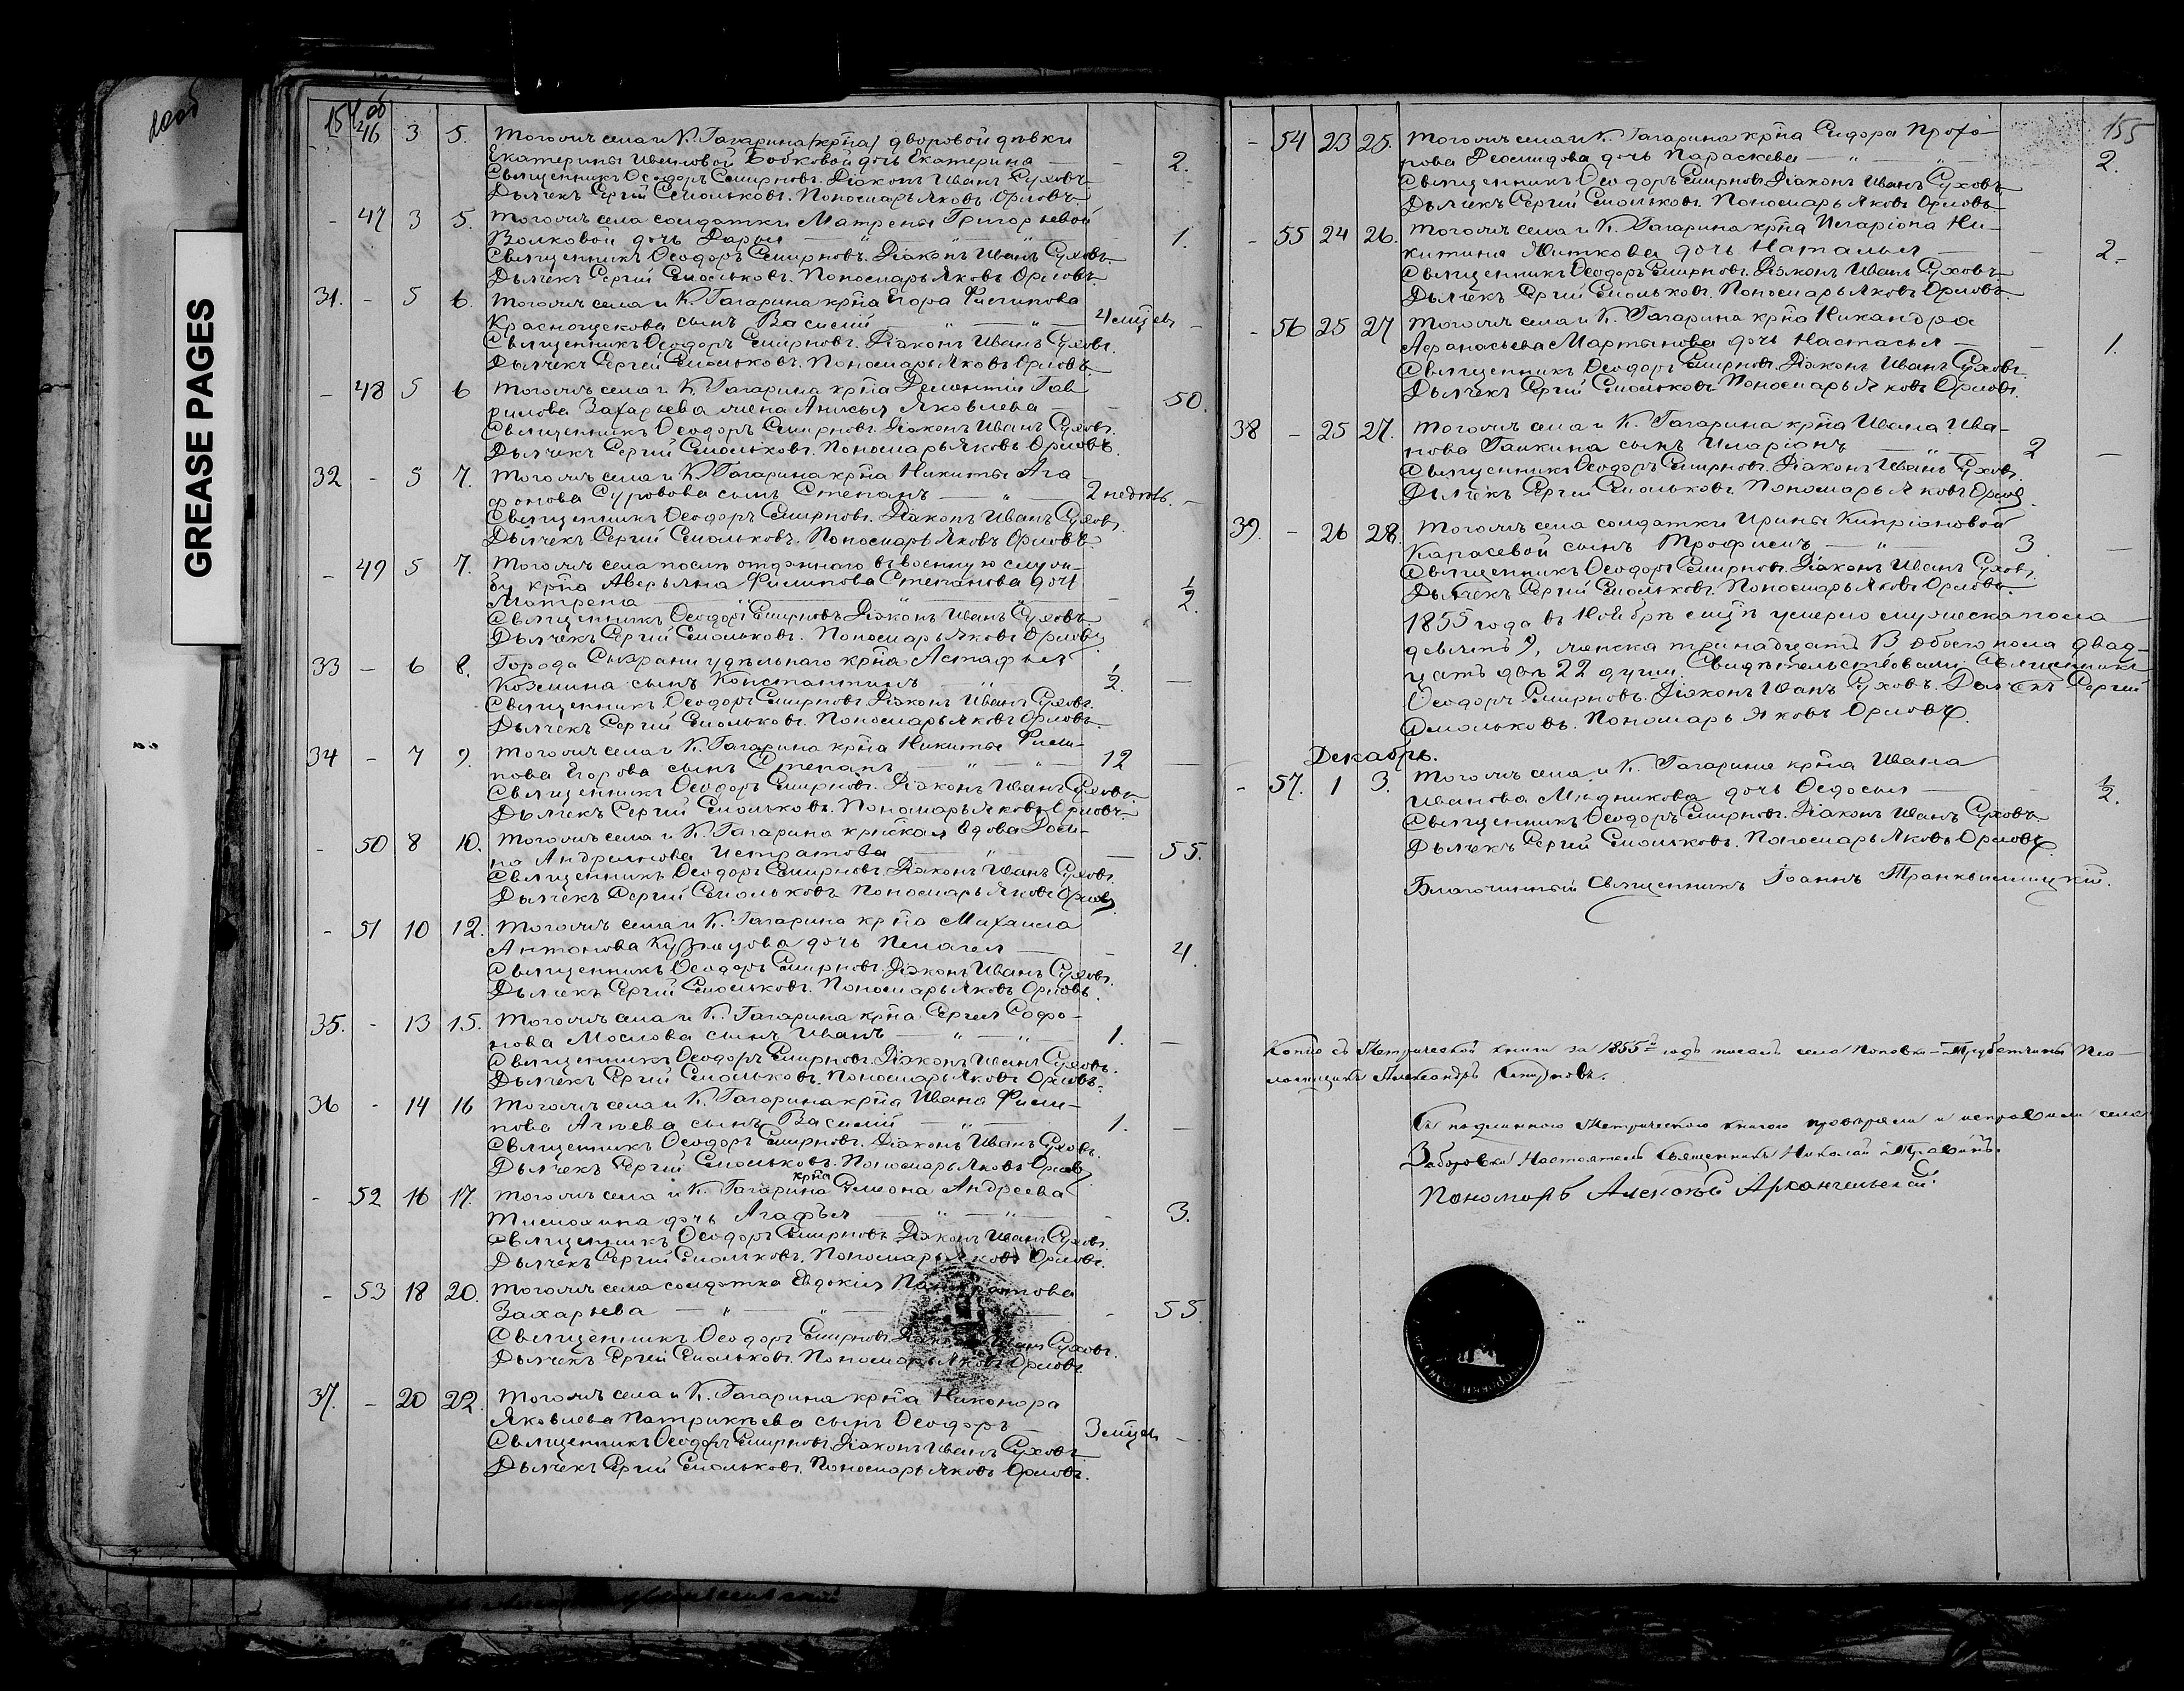 100об
GREASE PAGES
154об
- 46 3 5. Тогожъ села и К. Гагарина /крна/ дворовой дѣвки
Екатерины Ивановой Бобковой дочь Екатерина — - 2.
Священникъ Ѳеодоръ Смирновъ. Діаконъ Иванъ Суховъ
Дьячекъ Сергій Смольковъ. Пономарь Яковъ Орловъ
- 47 3 5. Тогожъ села солдатки Матрены Григорьевой
Волковой дочь Дарья — " — " — " 1.
Священникъ Ѳеодоръ Смирновъ. Діаконъ Иванъ Суховъ
Дьячекъ Сергій Смольковъ. Пономарь Яковъ Орловъ
31. - 5 6. Тогожъ села и К. Гагарина крна Егора Филипова
Краснощекова сынъ Василій — " — " — 4 мцев -
Священникъ Ѳеодоръ Смирновъ. Діаконъ Иванъ Суховъ.
Дьячекъ Сергій Смольковъ. Пономарь Яковъ Орловъ
- 48 5 6 Тогожъ села и К. Гагарина крна Дементія Гав
рилова Захарьева жена Анисья Яковлева — - 50.
Священникъ Ѳеодоръ Смирновъ. Діаконъ Иванъ Суховъ.
Дьячекъ Сергій Смольковъ. Пономарь Яковъ Орловъ.
32 - 5 7. Тогожъ села и К. Гагарина крна Никиты Ага
фонова Суровова сынъ Степанъ — " — 2 недѣль. -
Священникъ Ѳеодоръ Смирновъ. Діаконъ Иванъ Суховъ.
Дьячекъ Сергій Смольковъ. Пономарь Яковъ Орловъ
- 49 5 7. Тогожъ села послѣ отданного въ военную служ-
бу крна Аверьяна Филипова Степанова дочь
Матрена — " — " — - 1/2.
Священникъ Ѳеодоръ Смирновъ Діаконъ Иванъ Суховъ
Дьячекъ Сергій Смольковъ. Пономарь Яковъ Орловъ
33 - 6 8. Города Сызрани удѣльнаго крна Астафья
Козмина сынъ Константинъ — " — 1/2. —
Священникъ Ѳеодоръ Смирновъ Діаконъ Иванъ Суховъ.
Дьячекъ Сергій Смольковъ. Пономарь Яковъ Орловъ
34 - 7 9. Тогожъ села и К. Гагарина крна Никиты Фили-
пова Егорова сынъ Степанъ — " — " — 12 —
Священникъ Ѳеодоръ Смирновъ. Діаконъ Иванъ Суховъ
Дьячекъ Сергій Смольковъ. Пономарь Яковъ Орловъ
- 50 8 10. Тогожъ села и К. Гагарина крнская вдова
Андреянова — " — — 55.
Священникъ Ѳеодоръ Смирновъ Діаконъ Иванъ Суховъ.
Дьячекъ Сергій Смольковъ Пономарь Яковъ Орловъ
- 51 10 12. Тогожъ села и К. Гагарина крна Михаила
Антонова Кузнецова дочь Пелагея — - 4.
Священникъ Ѳеодоръ Смирновъ. Діаконъ Иванъ Суховъ.
Дьячекъ Сергій Смольковъ. Пономарь Яковъ Орловъ.
35. - 13 15. Тогожъ села и К. Гагарина крна Сергея Софо-
нова Маслова сынъ Иванъ — " — " — 1. —
Священникъ Ѳеодоръ Смирновъ. Діаконъ Иванъ Суховъ.
Дьячекъ Сергій Смольковъ. Пономарь Яковъ Орловъ.
36 - 14 16 Тогожъ села и К. Гагарина крна Ивана Фили-
пова Агѣева сынъ Василій — " — 1. —
Священникъ Ѳеодоръ Смирновъ. Діаконъ Иванъ Суховъ.
Дьячекъ Сергій Смольковъ. Пономарь Яковъ Орловъ
- 52 16 17. Тогожъ села и К. Гагарина крна Симеона Андреева
Тимохина дочь Агафья — " — " — - 3.
Священникъ Ѳеодоръ Смирновъ Діаконъ Иванъ Суховъ.
Дьячекъ Сергій Смольковъ. Пономарь Яковъ Орловъ.
- 53 18 20. Тогожъ села солдатка Евдокія Панкратова
Захарьева — " — " — - 55.
Священникъ Ѳеодоръ Смирновъ Діаконъ Иванъ Суховъ.
Дьячекъ Сергій Смольковъ. Пономарь Яковъ Орловъ
37. - 20 22. Тогожъ села и К. Гагарина крна Никонора
Яковлева Патрикѣева сынъ Ѳеодоръ — 3 мцев -
Священникъ Ѳеодоръ Смирновъ Діаконъ Иванъ Суховъ
Дьячекъ Сергій Смольковъ. Пономарь Яковъ Орловъ.
155
- 54 23 25. Тогожъ села и К. Гагарина крна Сидора Прохо-
рова Деомидова дочь Параскева — " — " — 2.
Священникъ Ѳеодоръ Смирновъ Діаконъ Иванъ Суховъ
Дьячекъ Сергій Смольковъ. Пономарь Яковъ Орловъ
- 55 24 26. Тогожъ села и К. Гагарина крна Иларіона Ни-
китина Житкова дочь Наталья — - 2-
Священникъ Ѳеодоръ Смирновъ. Діаконъ Иванъ Суховъ
Дьячекъ Сергій Смольковъ. Пономарь Яковъ Орловъ.
- 56 25 27 Тогожъ села и К. Гагарина крна Никандра
Афанасьева Мартынова дочь Настасья — - 1.
Священникъ Ѳеодоръ Смирновъ Діаконъ Иванъ Суховъ.
Дьячекъ Сергій Смольковъ Пономарь Яковъ Орловъ.
38 - 25 27. Тогожъ села и К. Гагарина крна Ивана Ива-
нова Галкина сынъ Иларіонъ — " — 2 —
Священникъ Ѳеодоръ Смирновъ. Діаконъ Иванъ Суховъ
Дьячекъ Сергій Смольковъ. Пономарь Яковъ Орловъ.
39. - 26 28. Тогожъ села солдатки Ирины Кипріановой
Карасевой сынъ Трофимъ — " — 3. —
Священникъ Ѳеодоръ Смирновъ. Діаконъ Иванъ Суховъ.
Дьячекъ Сергій Смольковъ. Пономарь Яковъ Орловъ.
1855 года въ Ноябрѣ мцѣ умерло мужеска пола —
девять 9, женска тринадцать 13 обоего пола двад-
цать двѣ 22 души. Свидѣтельствовали: Священникъ
Ѳеодоръ Смирновъ. Діаконъ Иванъ Суховъ. Дьячекъ Сергій
Смольковъ. Пономарь Яковъ Орловъ.
Декабрь.
- 57. 1 3. Тогожъ села и К. Гагарина крна Ивана
Иванова Мѣдникова дочь Ѳедосья — - 1/2.
Священникъ Ѳеодоръ Смирновъ. Діаконъ Иванъ Суховъ
Дьячекъ Сергій Смольковъ. Пономарь Яковъ Орловъ
Благочинный Священникъ Іоаннъ Транквиллицкій.
Копію съ Метрической книги за 1855й годъ писалъ села Поповки-Трубетчины Пса-
ломщикъ Александръ
Съ подлинною Метрическою книгою провѣряли и исправили села
Заборовки Настоятель Священникъ Николай Травинъ.
Пономарь Алексѣй Архангельскій.